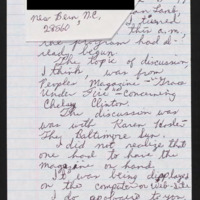 New Bern, N.C.
28560
I tuned
this a.m.,
the program had al-
ready begun.
The topic of discussion,
I think was from
Peoples Magazine "Grace
Under Fire" concerning
Chelsey Clinton.
The discussion was
was with Karen Hosler
The Baltimore Sun.
I did not realize that
one had to have the
magazine on hand.
It was being displayed
on the computer on web site
I do apologize to you